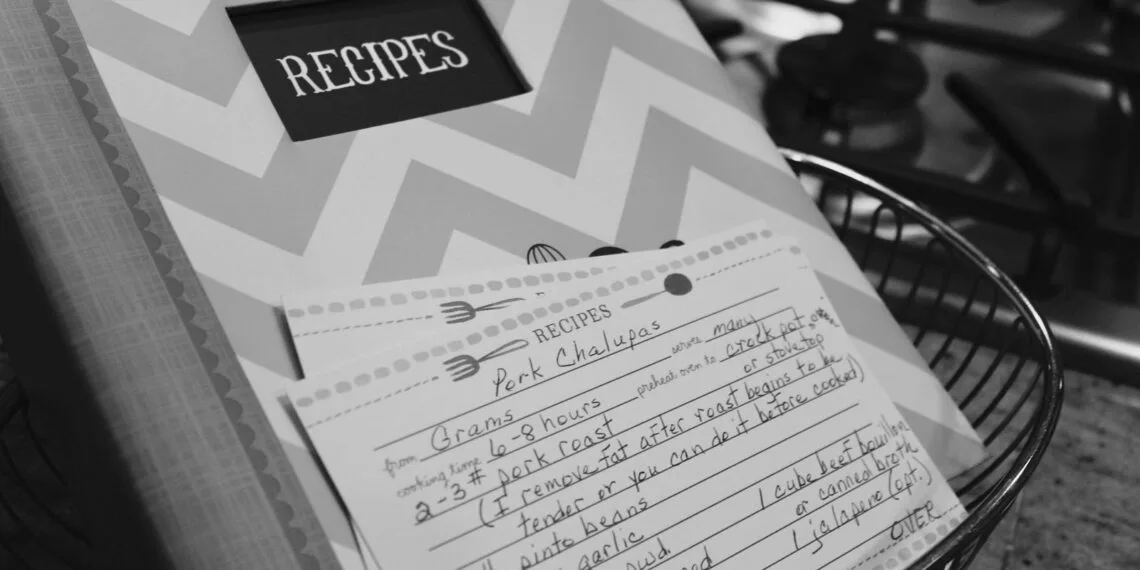 RECIPES
RECIPES
Pork Chalupas
from Grams serves many
cooking time 6-8 hours preheat oven to crock pot
or stove top
2-3# pork roast
(I remove fat after roast begins to be
tender or you can do it before cooked)
pinto beans 1 cube beef bouillon
garlic or canned broth
pwd. 1 jalapeno (opt.)
OVER